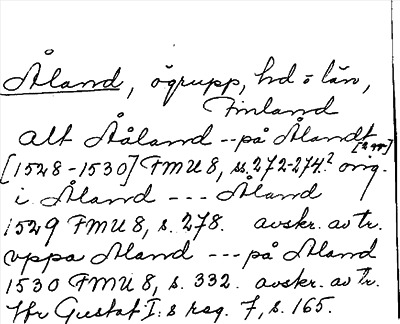 Åland, ögrupp, hd o län,
Finland
alt Ååland -- på Ålandt
[2 ggr]
[1528-1530] FMU 8, ss. 272-274. orig.
i Åland --- Åland
1529 FMU 8, s. 278. avskr. av tr.
vppa Åland --- på Åland
1530 FMU 8, s. 332. avskr. av Tr.
Jfr Gustaf I:s reg. 7, s. 165.